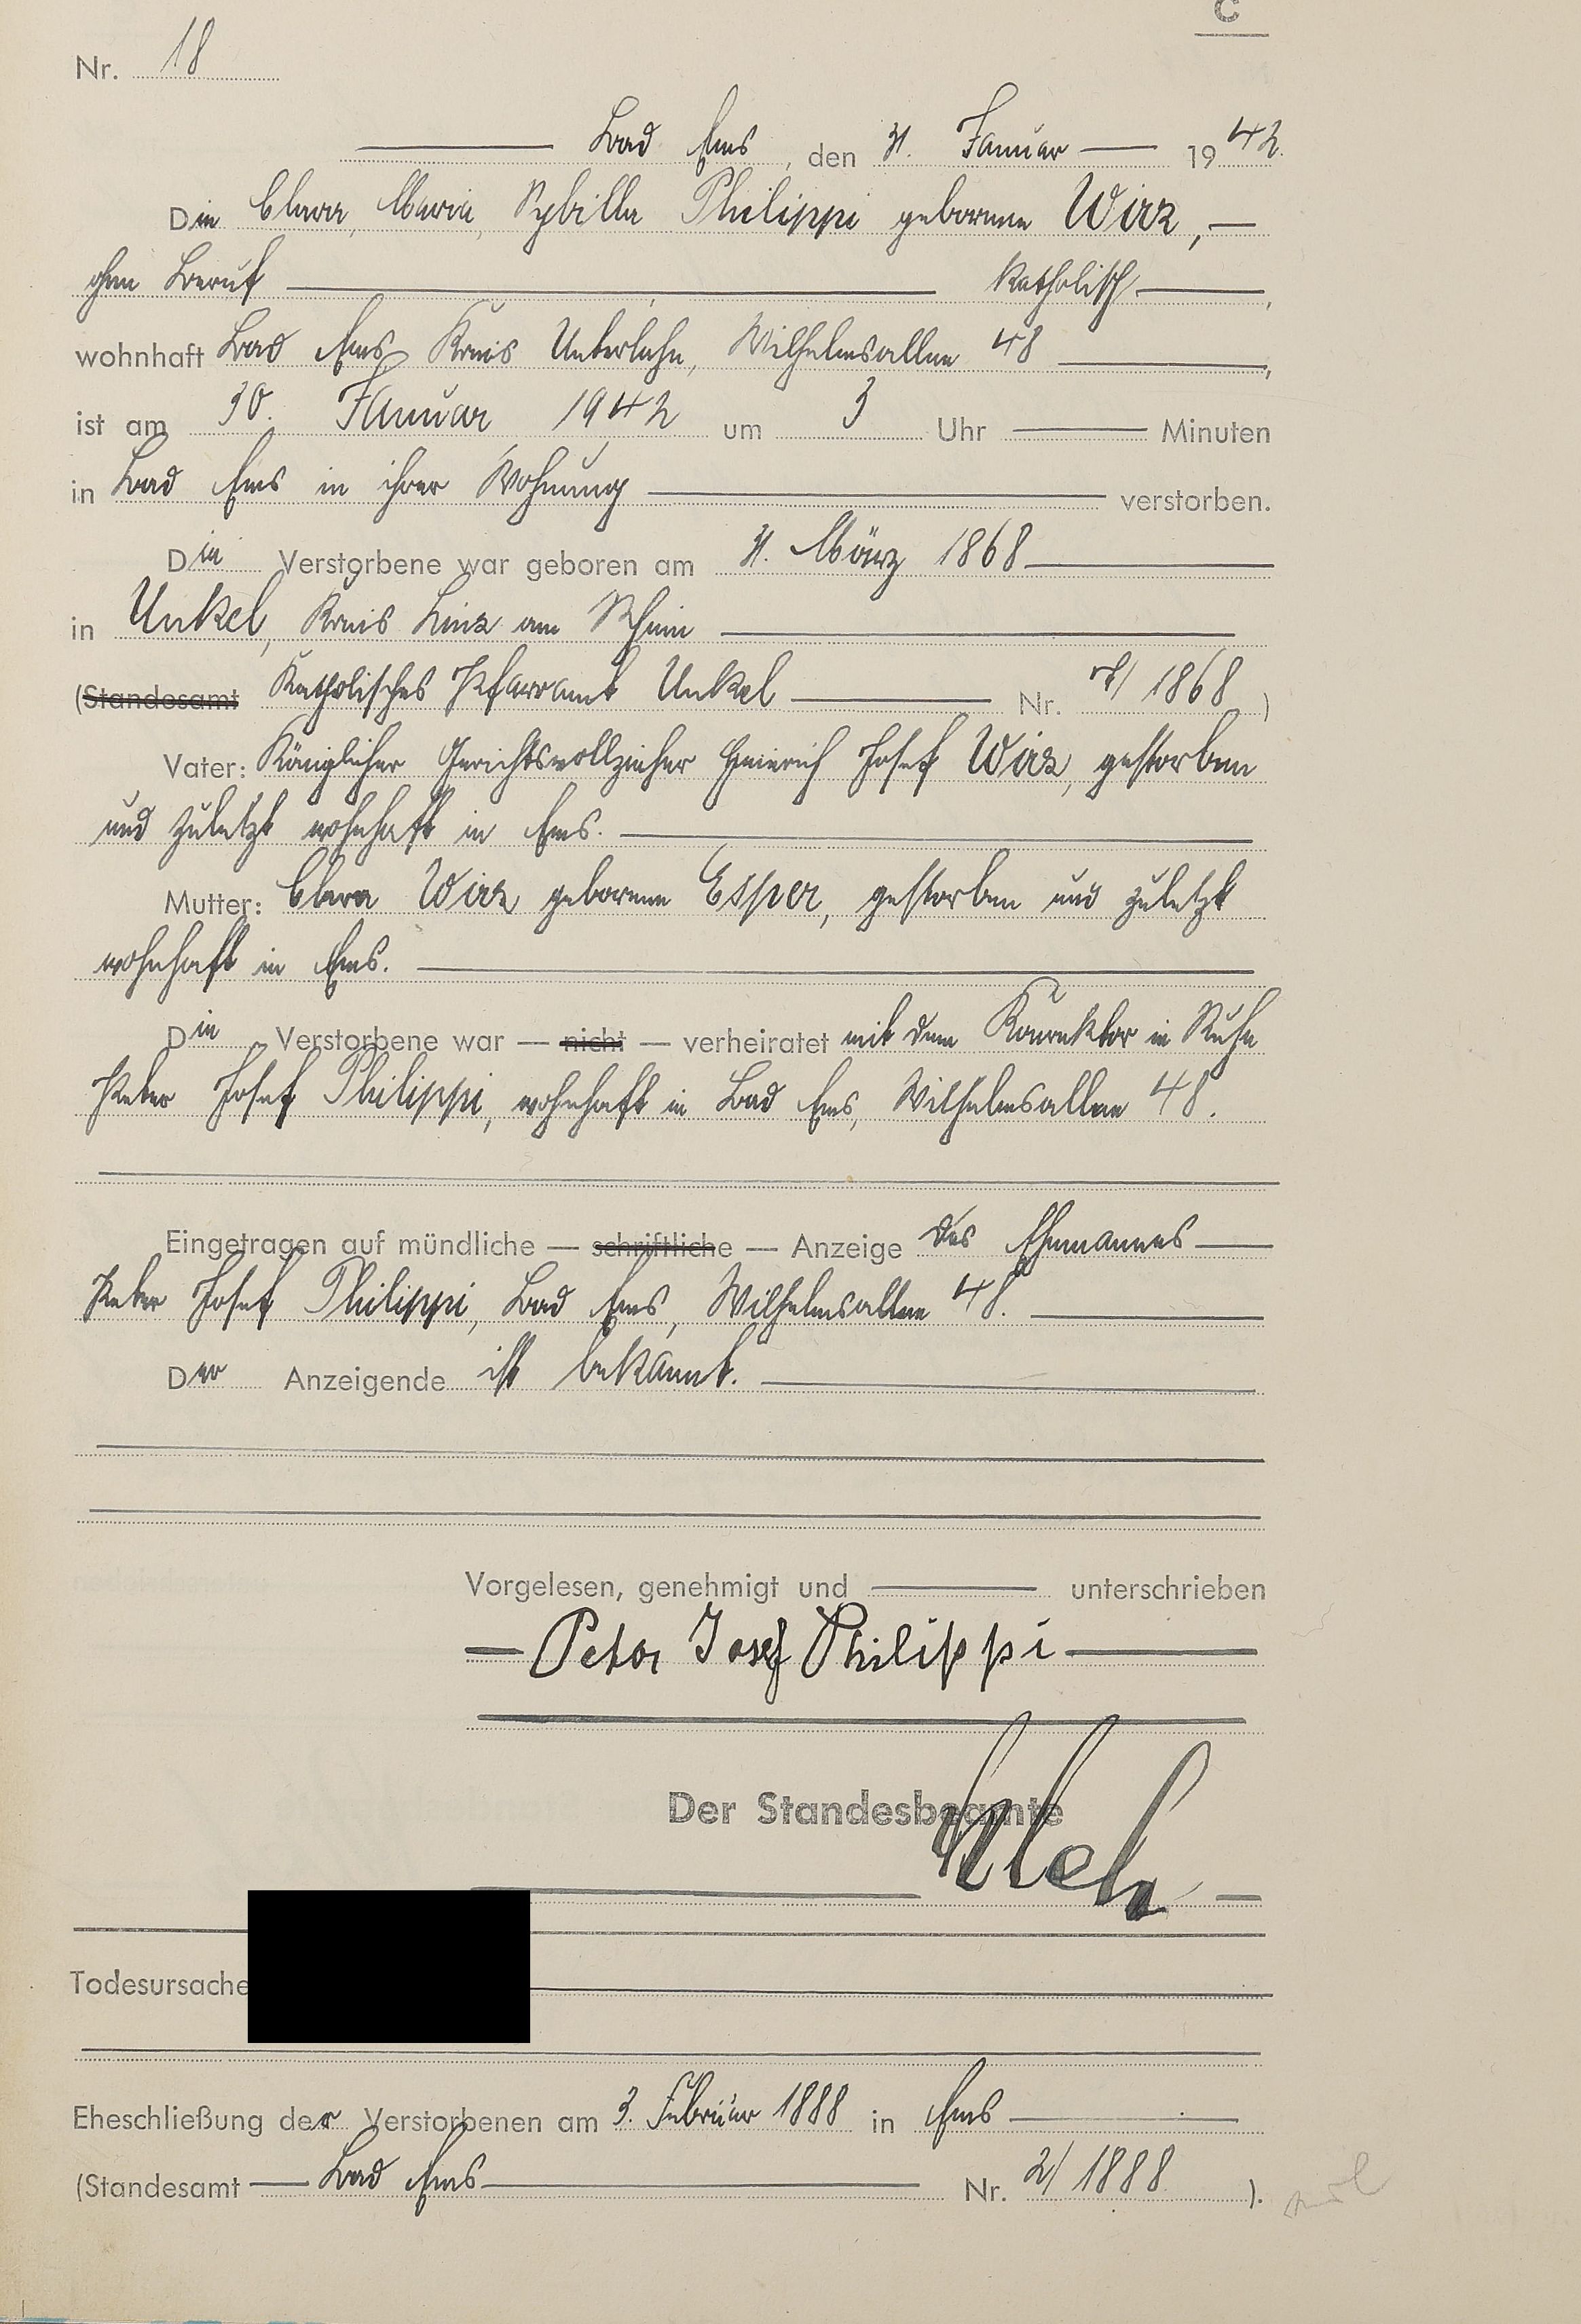 C
Nr. 18
Bad Ems, den 31. Januar 1942.
Die Clara, Maria, Sybilla Philippi geborene Wirz,
ohne Beruf katholisch,
wohnhaft Bad Ems, Kreis Unterlahn, Wilhelmsallee 48,
ist am 30. Januar 1942 um 3 Uhr Minuten
in Bad Ems in ihrer Wohnung verstorben.
Die Verstorbene war geboren am 31. März 1868
in Unkel, Kreis Linz am Rhein
(Standesamt Katholisches Pfarramt Unkel Nr. 7/1868)
Vater: Königlicher Gerichtsvollzieher Heinrich Josef Wirz, gestorben
und zuletzt wohnhaft in Ems.
Mutter: Clara Wirz geborene Esper, gestorben und zuletzt
wohnhaft in Ems.
Die Verstorbene war — nicht — verheiratet mit dem Konrektor in Ruhe
Peter Josef Philippi, wohnhaft in Bad Ems, Wilhelmsallee 48.
Eingetragen auf mündliche — schriftliche — Anzeige des Ehemannes
Peter Josef Philippi, Bad Ems, Wilhelmsallee 48.
Der Anzeigende ist bekannt.
Vorgelesen, genehmigt und unterschrieben
Peter Josef Philippi
Der Standesbeamte
Todesursache
Eheschließung der Verstorbenen am 3. Februar 1888 in Ems
(Standesamt Bad Ems Nr. 2/1888).